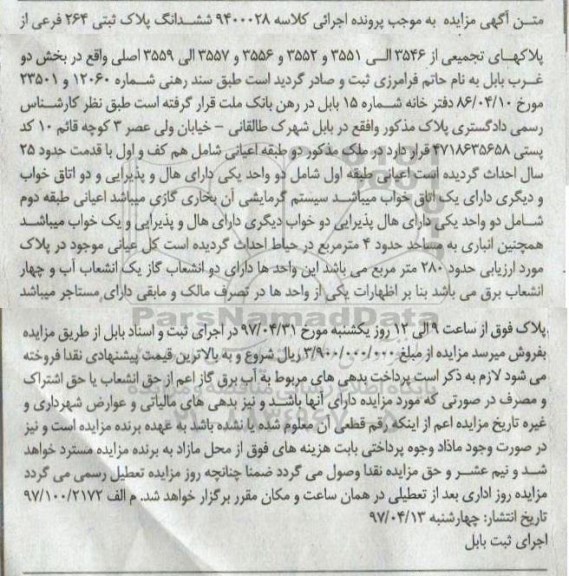 متن آگهی مزایده به موجب پرونده اجرائی کلاسه ۹۴۰۰۰۲۸ ششدانگ پلاک ثبتی ۲۶۴ فرعی از
پلاکهای تجمیعی از ۳۵۴۶ الی ۳۵۵۱ و ۳۵۵۲ و ۳۵۵۶ و ۳۵۵۷ الی ۳۵۵۹ اصلی واقع در بخش دو
غرب بابل به نام حاتم فرامرزی ثبت و صادر گردید است طبق سند رهنی شماره ۱۲۰۶۰ و ۲۳۵۰۱
مورخ ۸۶/۰۴/۱۰ دفتر خانه شماره ۱۵ بابل در رهن بانک ملت قرار گرفته است طبق نظر کارشناس
رسمی دادگستری پلاک مذکور واقفع در بابل شهرک طالقانی - خیابان ولی عصر ۳ کوچه قائم ۱۰ کد
پستی ۴۷۱۸۶۳۵۶۵۸ قرار دارد در ملک مذکور دو طبقه اعیانی شامل هم کف و اول با قدمت حدود ۲۵
سال احداث گردیده است اعیانی طبقه اول شامل دو واحد یکی دارای هال و پذیرایی و دو اتاق خواب
و دیگری دارای یک اتاق خواب میباشد سیستم گرمایشی آن بخاری گازی میباشد اعیانی طبقه دوم
شامل دو واحد یکی دارای هال پذیرایی دو خواب دیگری دارای هال و پذیرایی و یک خواب میباشد
همچنین انباری به مساحد حدود ۴ مترمربع در حیاط احداث گردیده است کل عیانی موجود در پلاک
مورد ارزیابی حدود ۲۸۰ متر مربع می باشد این واحد ها دارای دو انشعاب گاز یک انشعاب آب و چهار
انشعاب برق می باشد بنا بر اظهارات یکی از واحد ها در تصرف مالک و مابقی دارای مستاجر میباشد
ParsNamadData
پلاک فوق از ساعت ۹ الی ۱۲ روز یکشنبه مورخ ۹۷/۰۴/۳۱ در اجرای ثبت و اسناد بابل از طریق مزایده
بفروش میرسد مزایده از مبلغ ۳/۹۰۰/۰۰۰/۰۰۰ ریال شروع و به بالاترین قیمت پیشنهادی نقدا فروخته
می شود لازم به ذکر است پرداخت بدهی های مربوط به آب برق گاز اعم از حق انشعاب یا حق اشتراک
و مصرف در صورتی که مورد مزایده دارای آنها باشد و نیز بدهی های مالیاتی و عوارض شهرداری و
غیره تاریخ مزایده اعم از اینکه رقم قطعی آن معلوم شده یا نشده باشد به عهده برنده مزایده است و نیز
در صورت وجود ماذاد وجوه پرداختی بابت هزینه های فوق از محل مازاد به برنده مزایده مسترد خواهد
شد و نیم عشر و حق مزایده نقدا وصول می گردد ضمنا چنانچه روز مزایده تعطیل رسمی می گردد
مزایده روز اداری بعد از تعطیلی در همان ساعت و مکان مقرر برگزار خواهد شد. م الف ۹۷/۱۰۰/۲۱۷۲
تاریخ انتشار: چهارشنبه ۹۷/۰۴/۱۳
اجرای ثبت بابل